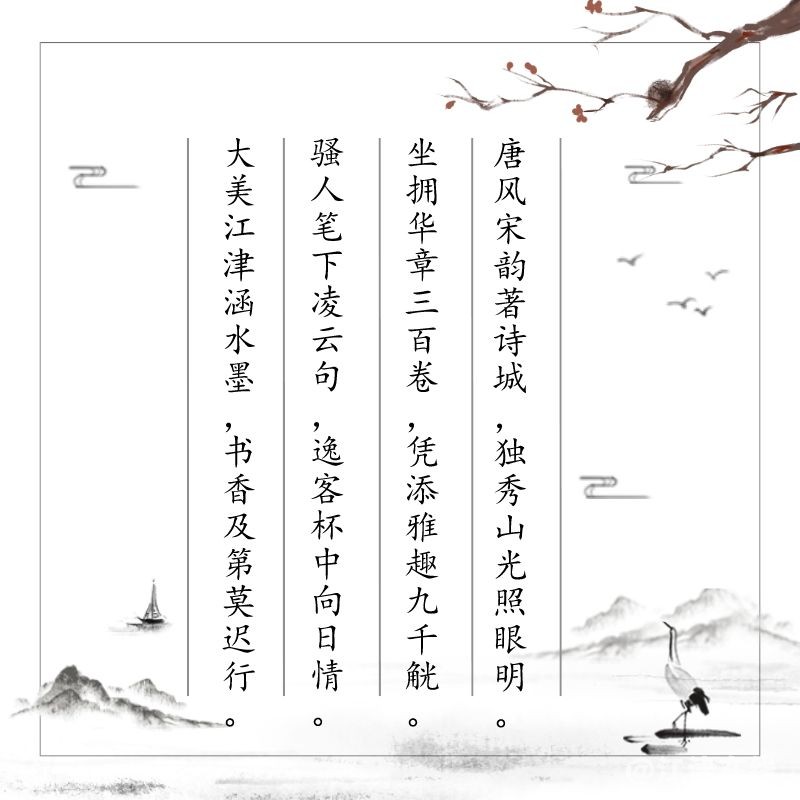 唐风宋韵著诗城，独秀山光照眼明。
坐拥华章三百卷，凭添雅趣九千觥。
骚人笔下凌云句，逸客杯中向日情。
大美江津涵水墨，书香及第莫迟行。